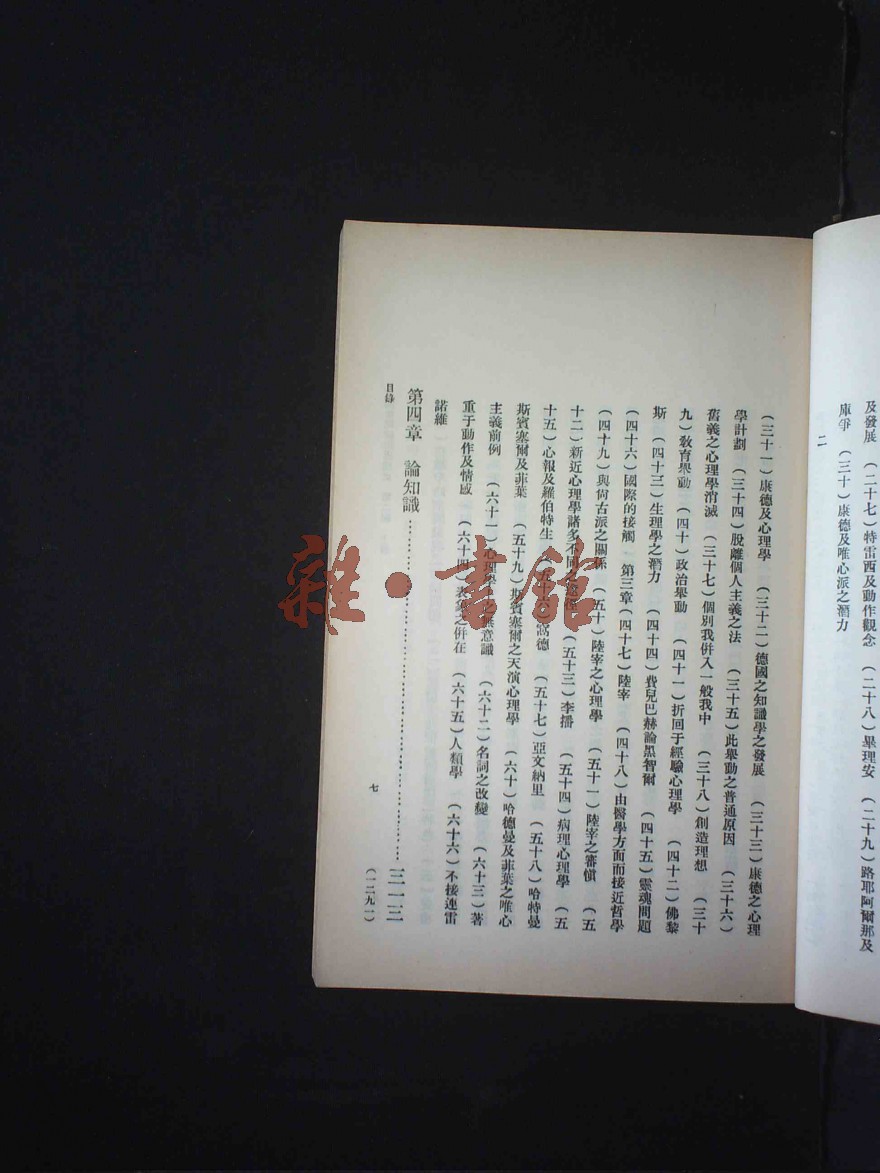 及發展　（二十七）特雷西及動作觀念　（二十八）畢理安　（二十九）路耶阿爾那及
庫爭　（三十）康德及唯心派之潛力
二
（三十一）康德及心理學　（三十二）德國之知識學之發展　（三十三）康德之心理
學計劃　（三十四）脫離個人主義之法　（三十五）此舉動之普通原因　（三十六）
舊義之心理學消滅　（三十七）個別我併入一般我中　（三十八）創造理想　（三十
九）教育舉動　（四十）政治舉動　（四十一）折回于經驗心理學　（四十二）佛黎
斯　（四十三）生理學之潛力　（四十四）費兒巴赫論黑智爾　（四十五）靈魂問題
（四十六）國際的接觸　第三章（四十七）陸宰　（四十八）由醫學方面而接近哲學
（四十九）與尚古派之關係　（五十）陸宰之心理學　（五十一）陸宰之審愼　（五
十二）新近心理學諸多不同之　（五十三）李播　（五十四）病理心理學　（五
十五）心報及羅伯特生　窩德　（五十七）亞文納里　（五十八）哈特曼
斯賓塞爾及菲葉　（五十九）斯賓塞爾之天演心理學　（六十）哈德曼及菲葉之唯心
主義前例　（六十一）心理學　無意識　（六十二）名詞之改變　（六十三）著
重于動作及情感　（六十四）表象之併在　（六十五）人類學　（六十六）不接連雷
諾維
第四章　論知識…………………………三一一三
目錄
七
（一二九一）
雜·書館